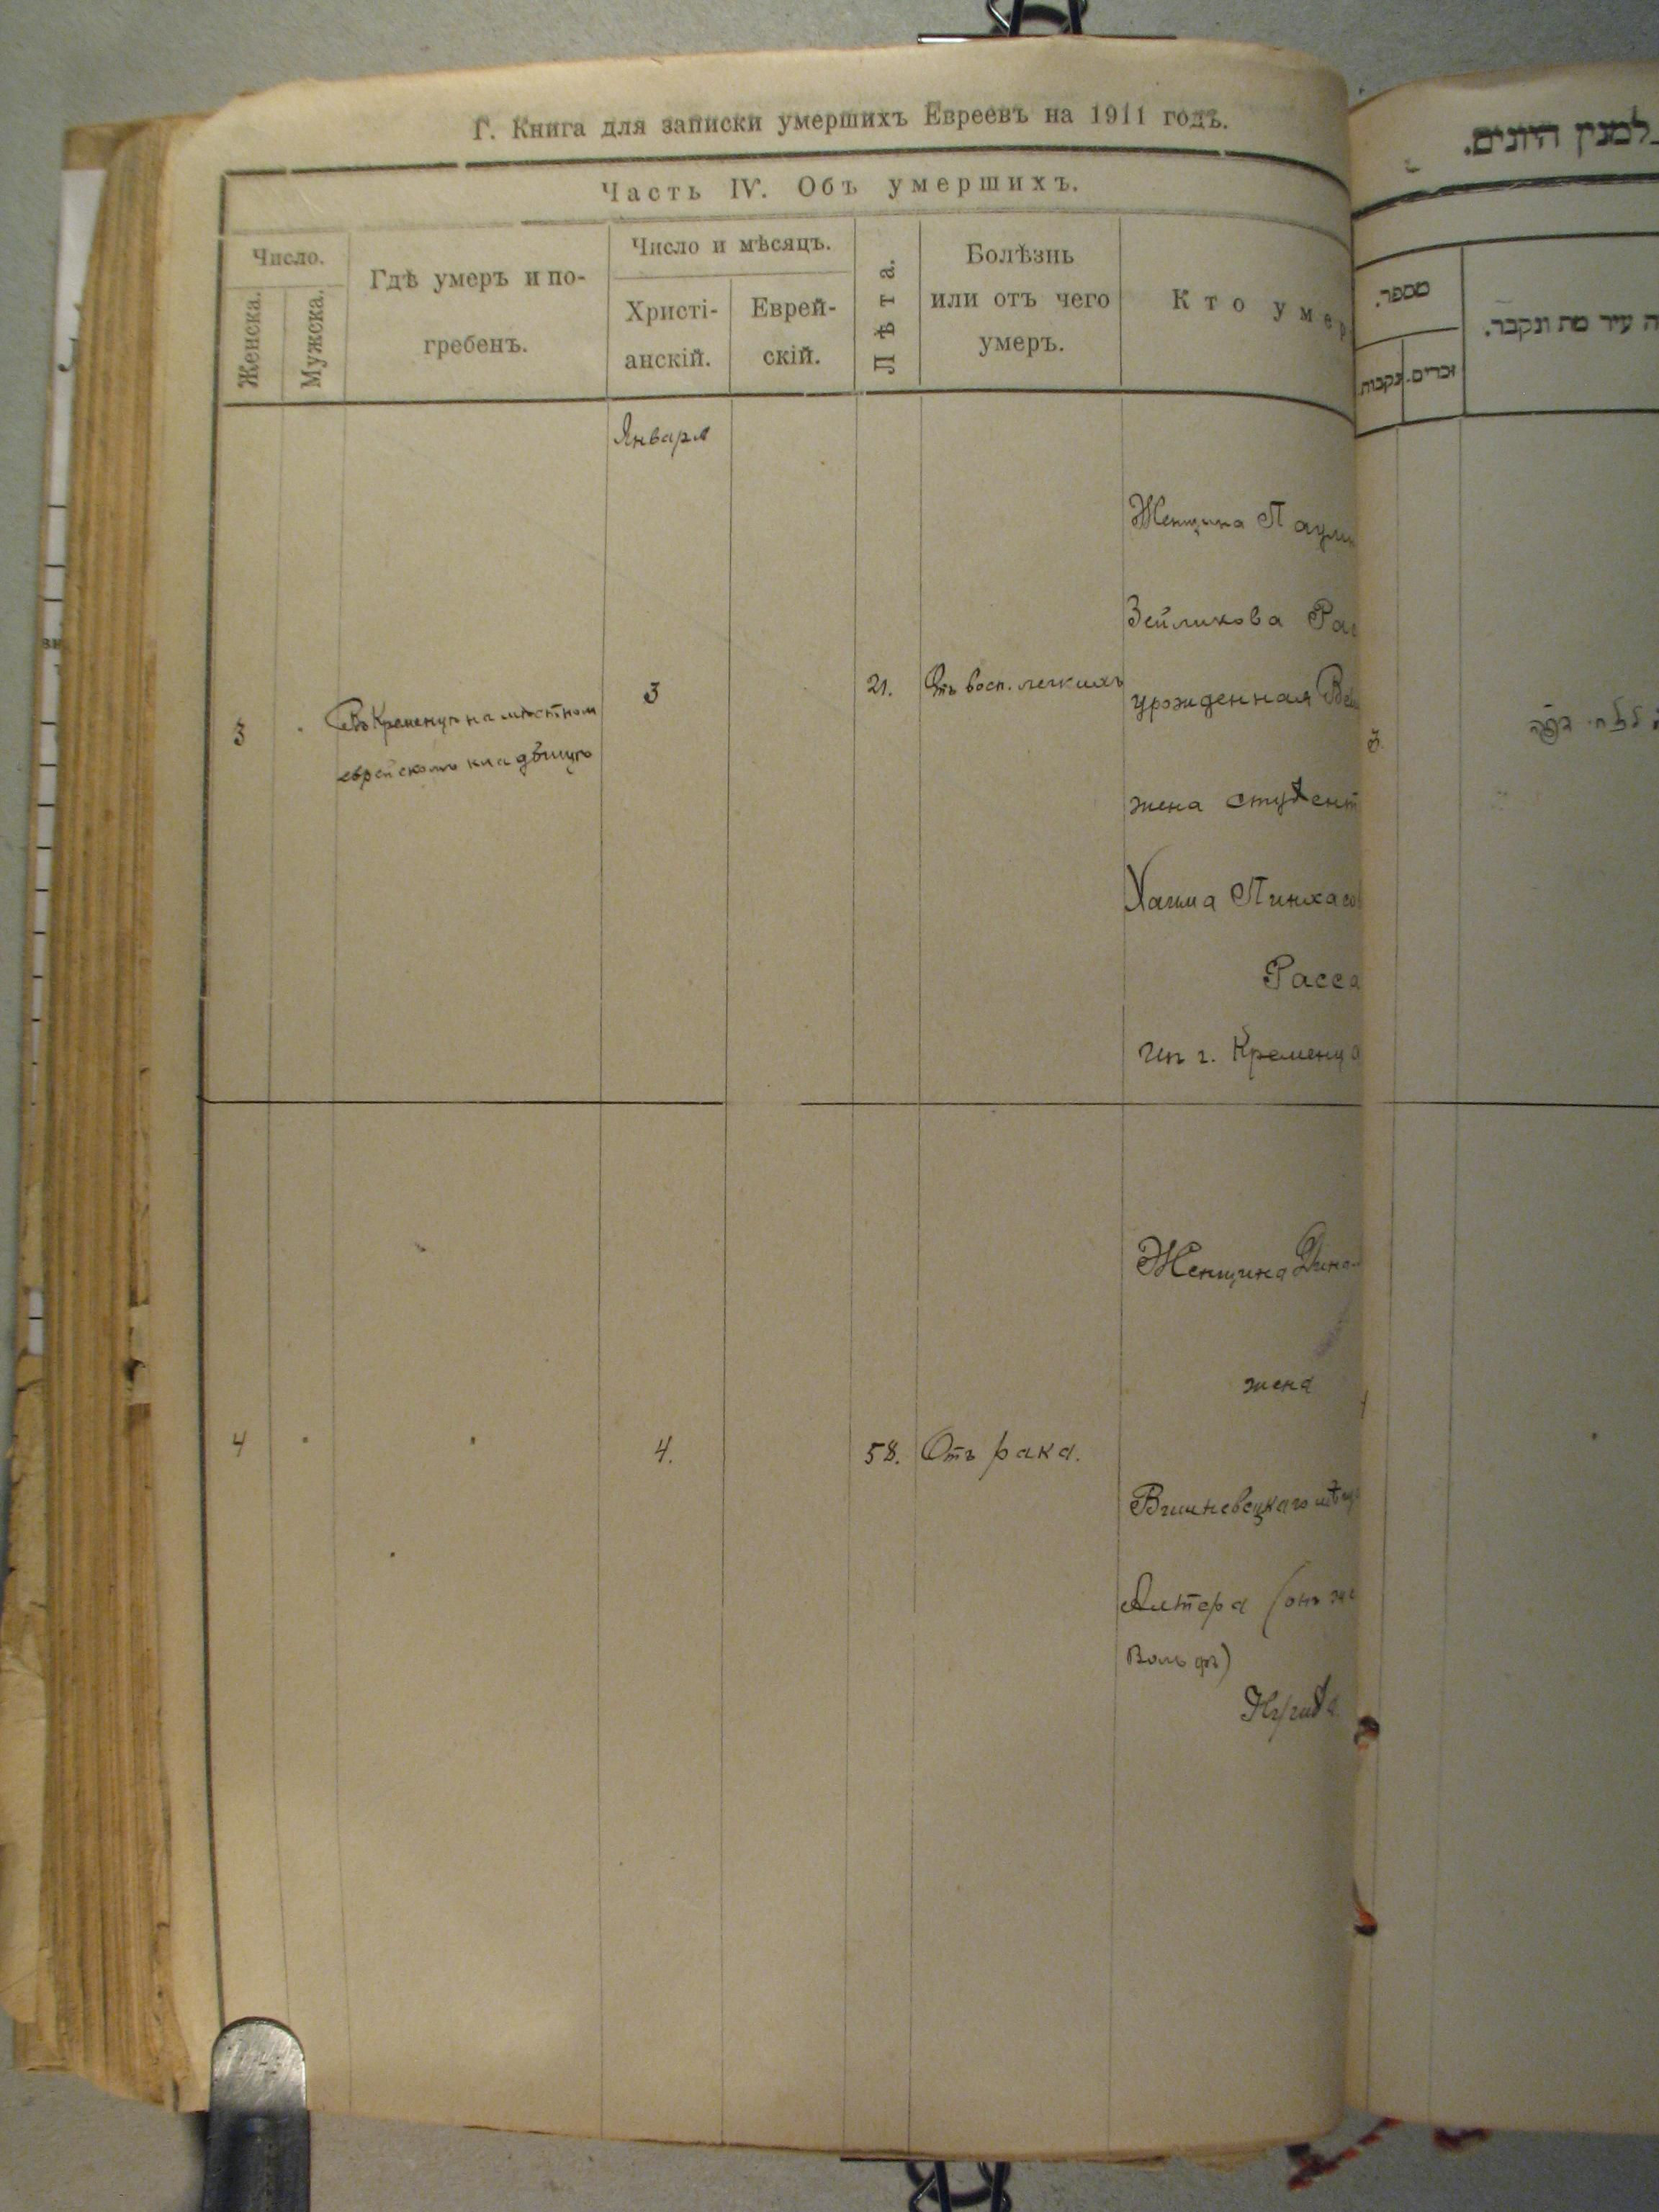 Г. Книга для записки умершихъ Евреевъ на 1911 годъ.
Часть IV. Объ умершихъ.
Число.
Женска.
Мужска.
Гдѣ умеръ и по-
гребенъ.
Число и мѣсяцъ.
Христі-
анскій.
Еврей-
скій.
Лѣта.
Болѣзнь
или отъ чего
умеръ.
Кто умер
Января
3
Въ Кременцѣ на мѣстном
еврейскомъ кладбищѣ
3
21.
Отъ восп. легкихъ
Женщина Паули
Зейликова Рас
урожденная
жена студент
Хаима Пинхасо
Расса
Из г. Кременца
4
4.
58.
Отъ рака.
Женщина Дина
жена
Вишневецкаго мѣщ
Алтера (онъ же
Вольфъ)
למנין היונים.
מספר.
נקבות.
זכרים.
ה עיר מת ונקבר.
3.